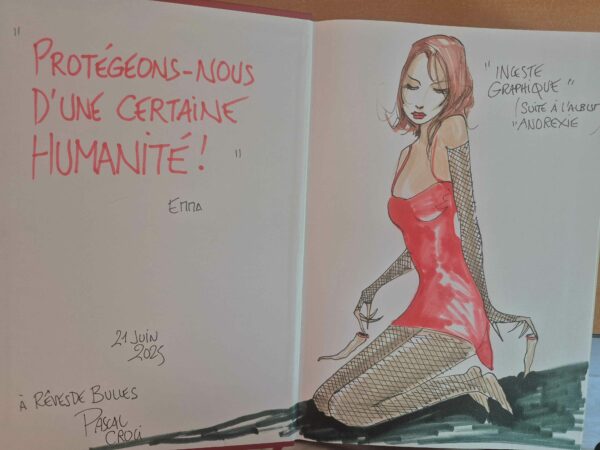 "PROTÉGEONS-NOUS
D'UNE CERTAINE
HUMANITÉ ! "
EMMA
21 JUIN
2025
À RÊVES DE BULLES
PASCAL
CROCI
"INCESTE
GRAPHIQUE"
(SUITE À L'ALBUM
"ANOREXIE